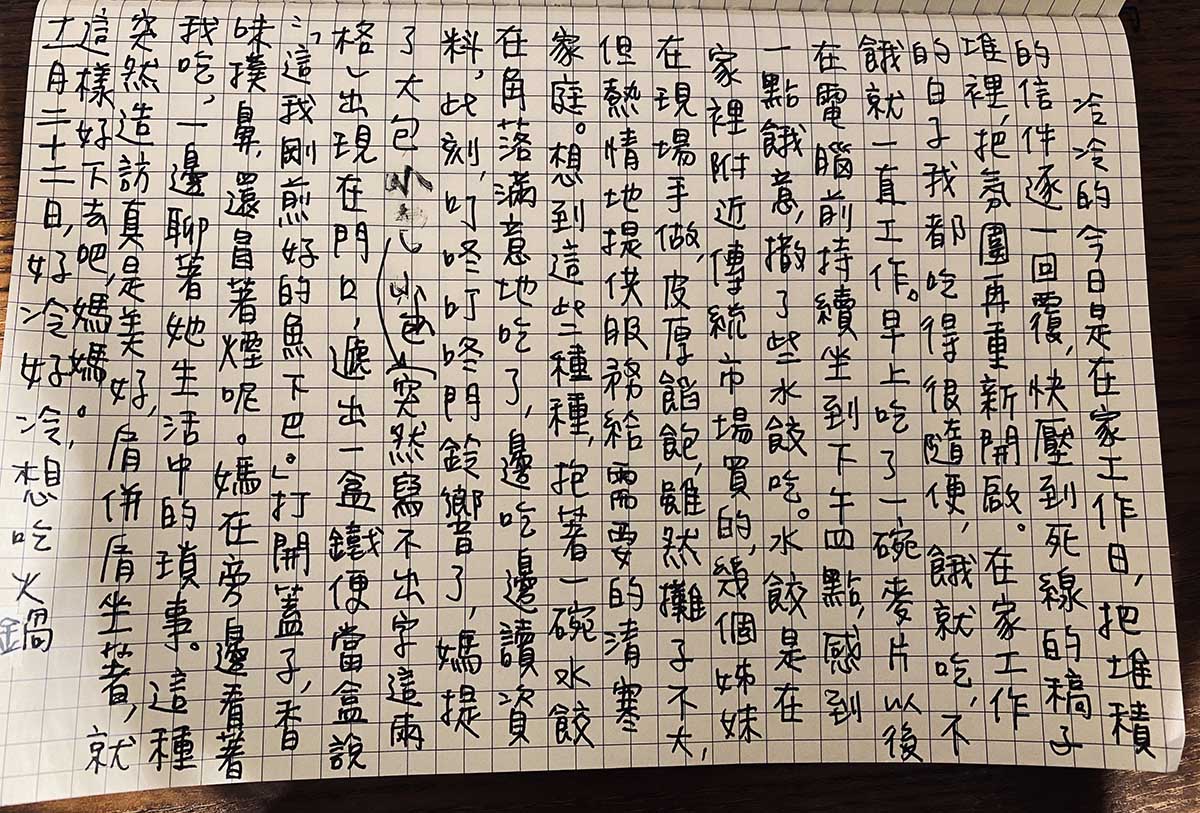 冷冷的今日是在家工作日，把堆積
的信件逐一回覆，快壓到死線的稿子
堆裡，把氛圍再重新開啟。在家工作
的日子我都吃得很隨便，餓就吃，不
餓就一直工作。早上吃了一碗麥片以後
在電腦前持續坐到下午四點，感到
一點餓意，撒了些水餃吃。水餃是在
家裡附近傳統市場買的，幾個姊妹
在現場手做，皮厚餡飽，雖然攤子不大，
但熱情地提供服務給需要的清寒
家庭。想到這些種種，抱著一碗水餃
在角落滿意地吃了，邊吃邊讀資
料，此刻，叮咚叮咚門鈴響了，媽提
了大包（突然寫不出字這兩
格）出現在門口，遞出一盒鐵便當盒說
：「這我剛煎好的魚下巴。」打開蓋子，香
味撲鼻，還冒著煙呢。媽在旁邊看著
我吃，一邊聊著她生活中的瑣事。這種
突然造訪真是美好，肩併肩坐著，就
這樣好下去吧，媽媽。
十一月二十二日，好冷好冷，想吃火鍋